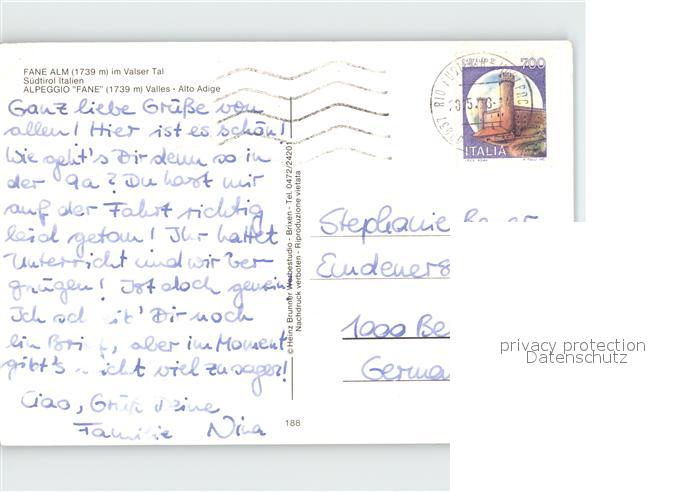 FANE ALM (1739 m) im Valser Tal
Südtirol Italien
ALPEGGIO "FANE" (1739 m) Valles - Alto Adige
Ganz liebe Grüße von
allen! Hier ist es schön!
Wie geht's Dir denn so in
der 9a? Du hast mir
auf der Fahrt richtig
leid getan! Ihr hattet
Unterricht und wir Ver-
gnügen! Ist doch gemein
Ich Dir noch
ein, aber im Moment
gibt's nicht viel zu sagen!
Ciao, Grüß Deine
Familie Nina
© Heinz Brunner Werbestudio - Brixen - Tel. 0472/24201
Nachdruck verboten - Riproduzione vietata
188
700
ITALIA
Stephanie
Emdeners
1000 Be
Germa
privacy protection
Datenschutz